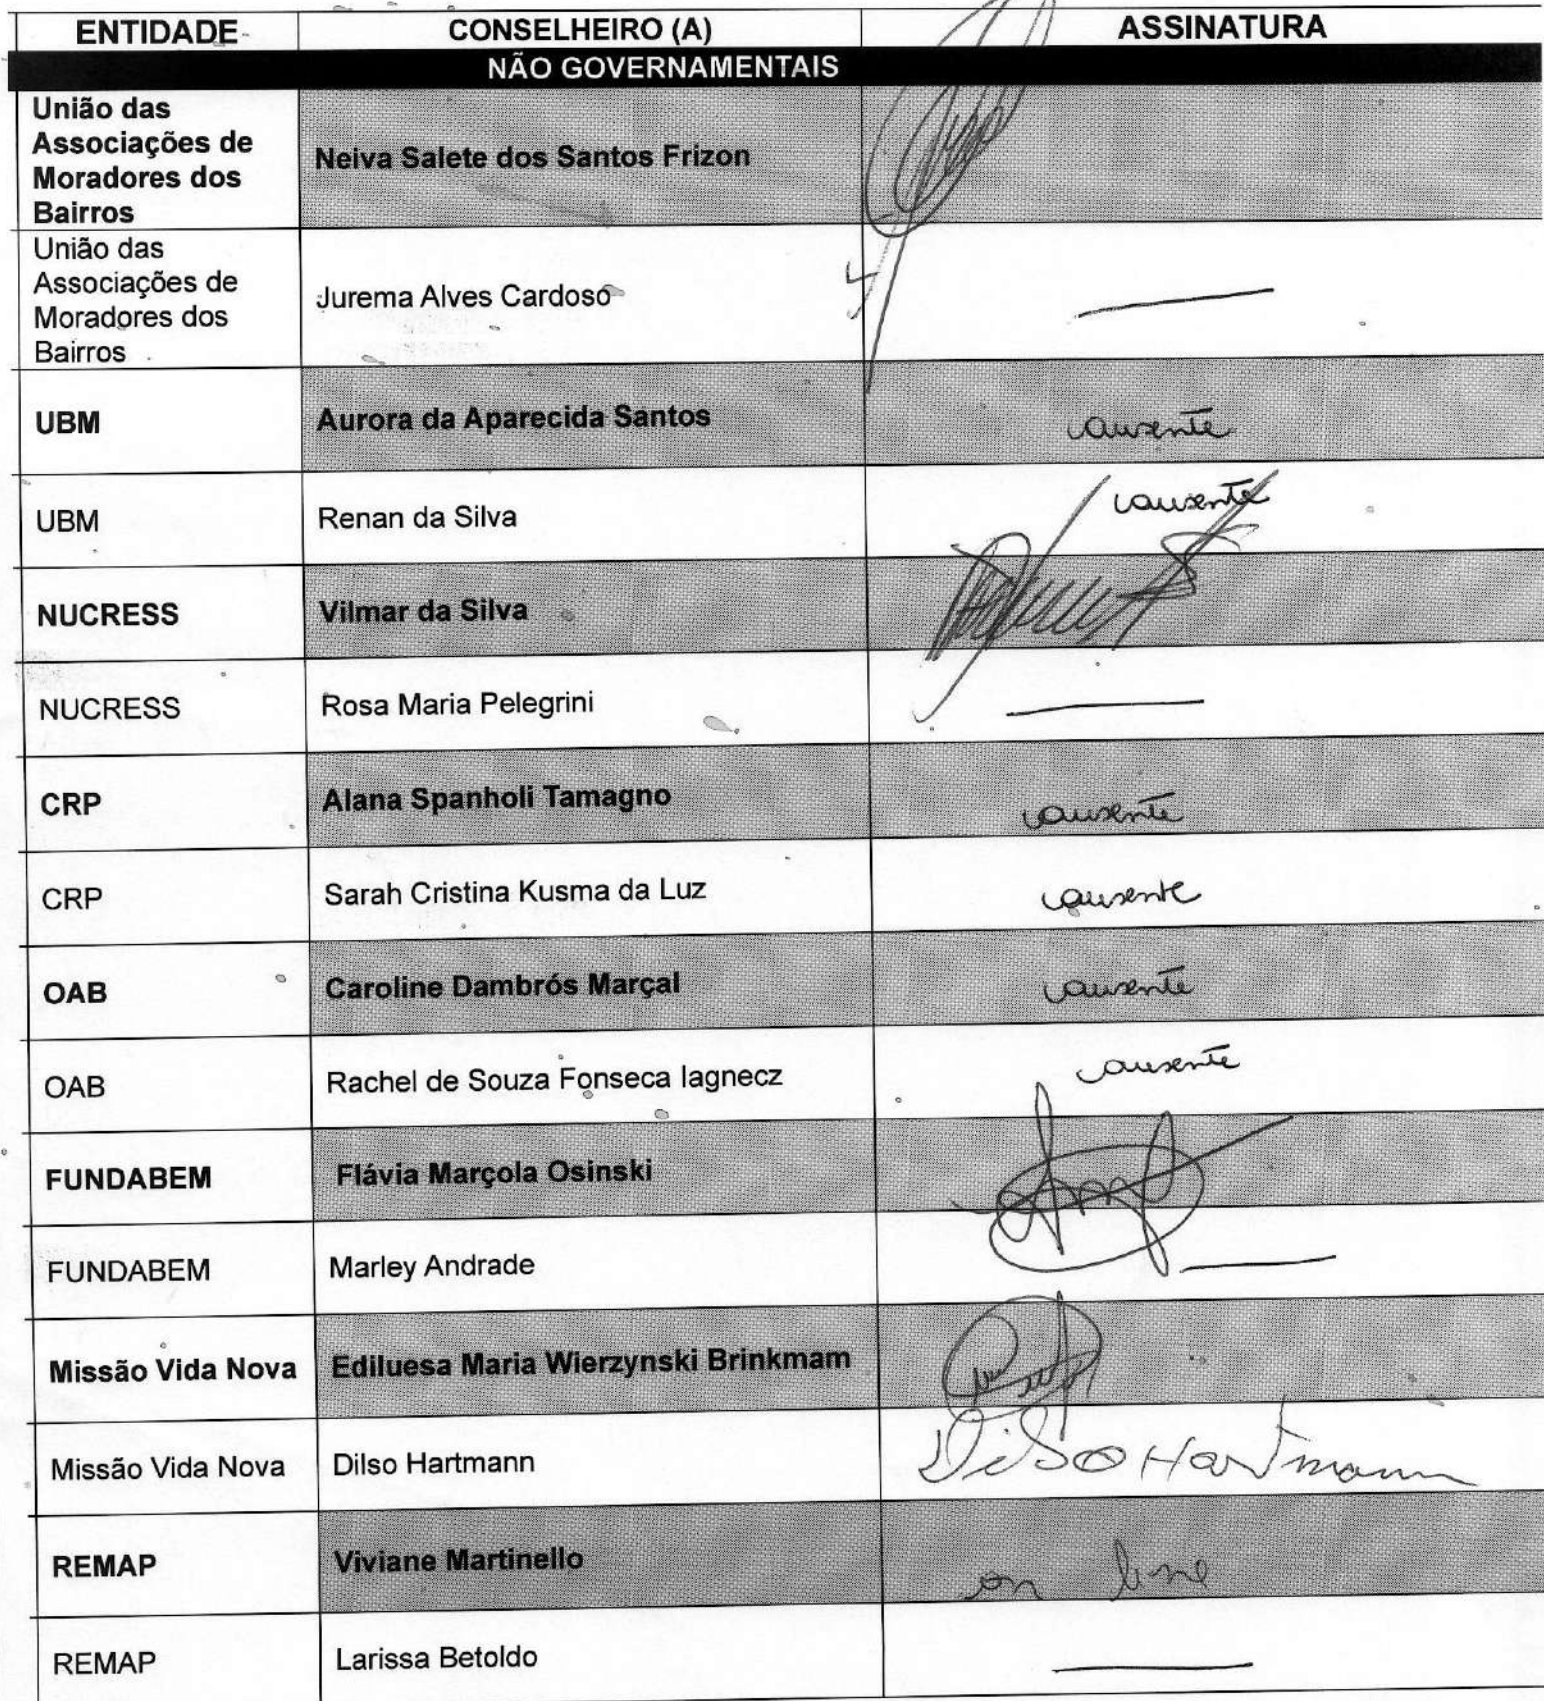 ENTIDADE CONSELHEIRO (A) ASSINATURA
NÃO GOVERNAMENTAIS
União das
Associações de
Moradores dos
Bairros
Neiva Salete dos Santos Frizon
União das
Associações de
Moradores dos
Bairros
Jurema Alves Cardoso
UBM Aurora da Aparecida Santos ausente
UBM Renan da Silva ausente
NUCRESS Vilmar da Silva
NUCRESS Rosa Maria Pelegrini
CRP Alana Spanholi Tamagno ausente
CRP Sarah Cristina Kusma da Luz ausente
OAB Caroline Dambrós Marçal ausente
OAB Rachel de Souza Fonseca Iagnecz ausente
FUNDABEM Flávia Marçola Osinski
FUNDABEM Marley Andrade
Missão Vida Nova Ediluesa Maria Wierzynski Brinkmam
Missão Vida Nova Dilso Hartmann Dilso Hartmann
REMAP Viviane Martinello on line
REMAP Larissa Betoldo